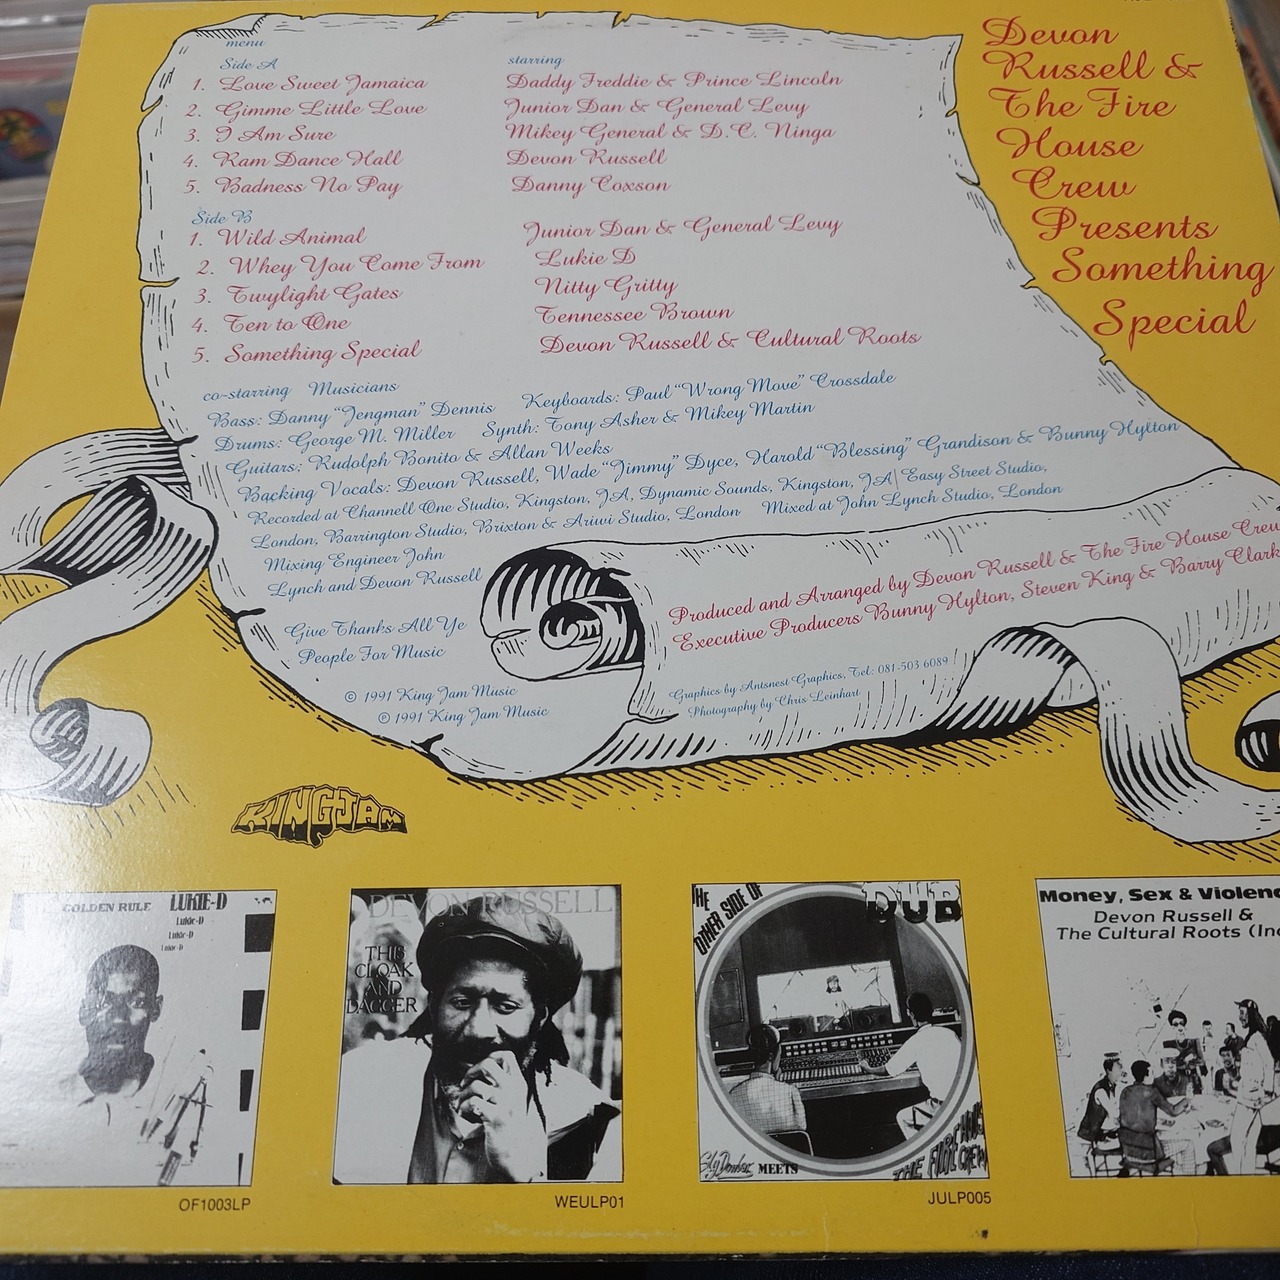 menu
Side A starring
1. Love Sweet Jamaica Daddy Freddie & Prince Lincoln
2. Gimme Little Love Junior Dan & General Levy
3. I Am Sure Mikey General & D.C. Ninga
4. Ram Dance Hall Devon Russell
5. Badness No Pay Danny Coxson
Side B
1. Wild Animal Junior Dan & General Levy
2. Whey You Come From Lukie D
3. Twylight Gates Nitty Gritty
4. Ten to One Tennessee Brown
5. Something Special Devon Russell & Cultural Roots
co-starring Musicians
Bass: Danny "Jengman" Dennis Keyboards: Paul "Wrong Move" Crossdale
Drums: George M. Miller Synth: Tony Asher & Mikey Martin
Guitars: Rudolph Bonito & Allan Weeks
Backing Vocals: Devon Russell, Wade "Jimmy" Dyce, Harold "Blessing" Grandison & Bunny Hylton
Recorded at Channell One Studio, Kingston, JA, Dynamic Sounds, Kingston, JA Easy Street Studio,
London, Barrington Studio, Brixton & Ariwi Studio, London Mixed at John Lynch Studio, London
Mixing Engineer John
Lynch and Devon Russell
Give Thanks All Ye
People For Music
© 1991 King Jam Music
© 1991 King Jam Music
Produced and Arranged by Devon Russell & The Fire House Crew
Executive Producers Bunny Hylton, Steven King & Barry Clark
Graphics by Antsnest Graphics, Tel: 081-503 6089
Photography by Chris Leinhart
Devon
Russell &
The Fire
House
Crew
Presents
Something
Special
KINGJAM
GOLDEN RULE LUKIE-D
Lukie-D
Lukie-D
Lukie-D
OF1003LP
DEVON RUSSELL
THIS
CLOAK
AND
DAGGER
WEULP01
THE
OTHER SIDE OF
DUB
Sly Dunbar MEETS
THE FIRE HOUSE CREW
JULP005
Money, Sex &
Devon Russell &
The Cultural Roots